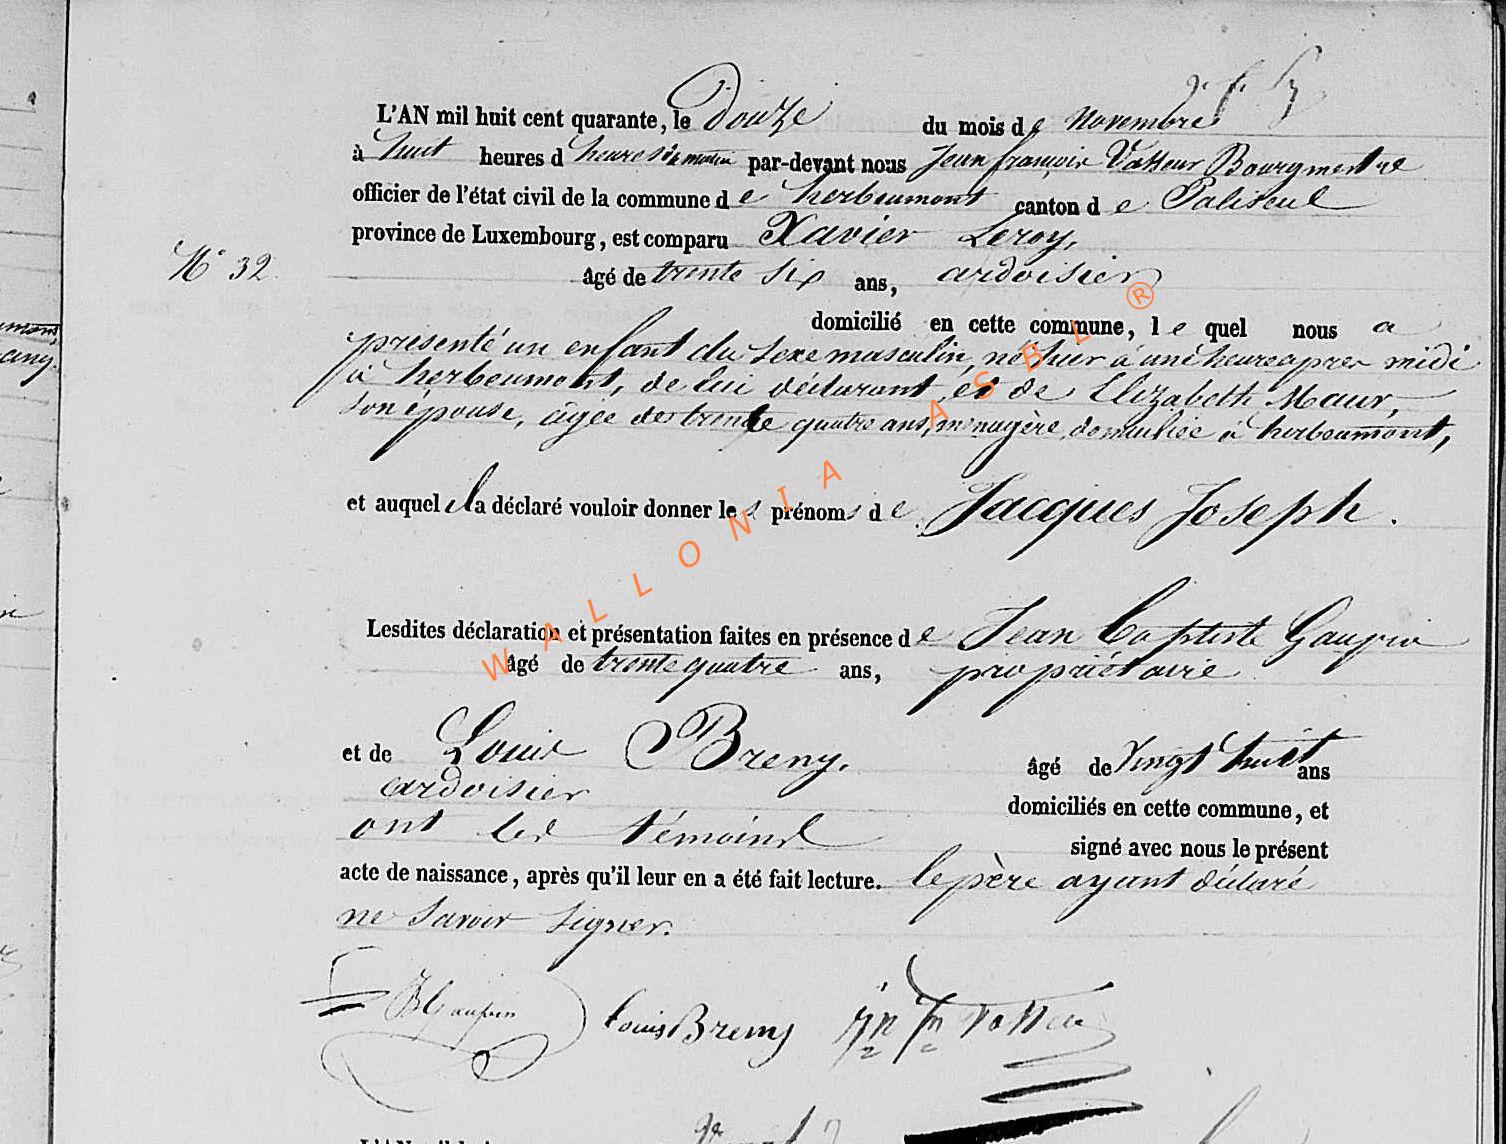 L'AN mil huit cent quarante, le Douze du mois de Novembre
à huit heures d heures du matin par-devant nous Jean françois Vasseur Bourgmestre
officier de l'état civil de la commune de herbeumont canton de Paliseul
province de Luxembourg, est comparu Xavier Leroy,
N° 32
âgé de trente six ans, ardoisier
domicilié en cette commune, le quel nous a
présenté un enfant du sexe masculin, né hier à une heure après midi
à herbeumont, de lui déclarant et de Elizabeth Maur,
son épouse, âgée de trente quatre ans, ménagère domiciliée à herbeumont,
et auquel il a déclaré vouloir donner les prénoms de Jacques Joseph.
Lesdites déclaration et présentation faites en présence de Jean Baptiste Gaupin
âgé de trente quatre ans, propriétaire
et de Louis Breny, âgé de vingt huit ans
ardoisier
domiciliés en cette commune, et
ont les témoins
signé avec nous le présent
acte de naissance, après qu'il leur en a été fait lecture. le père ayant déclaré
ne savoir signer.
JB Gaupin Louis Breny
WALLONIA ASBL ®